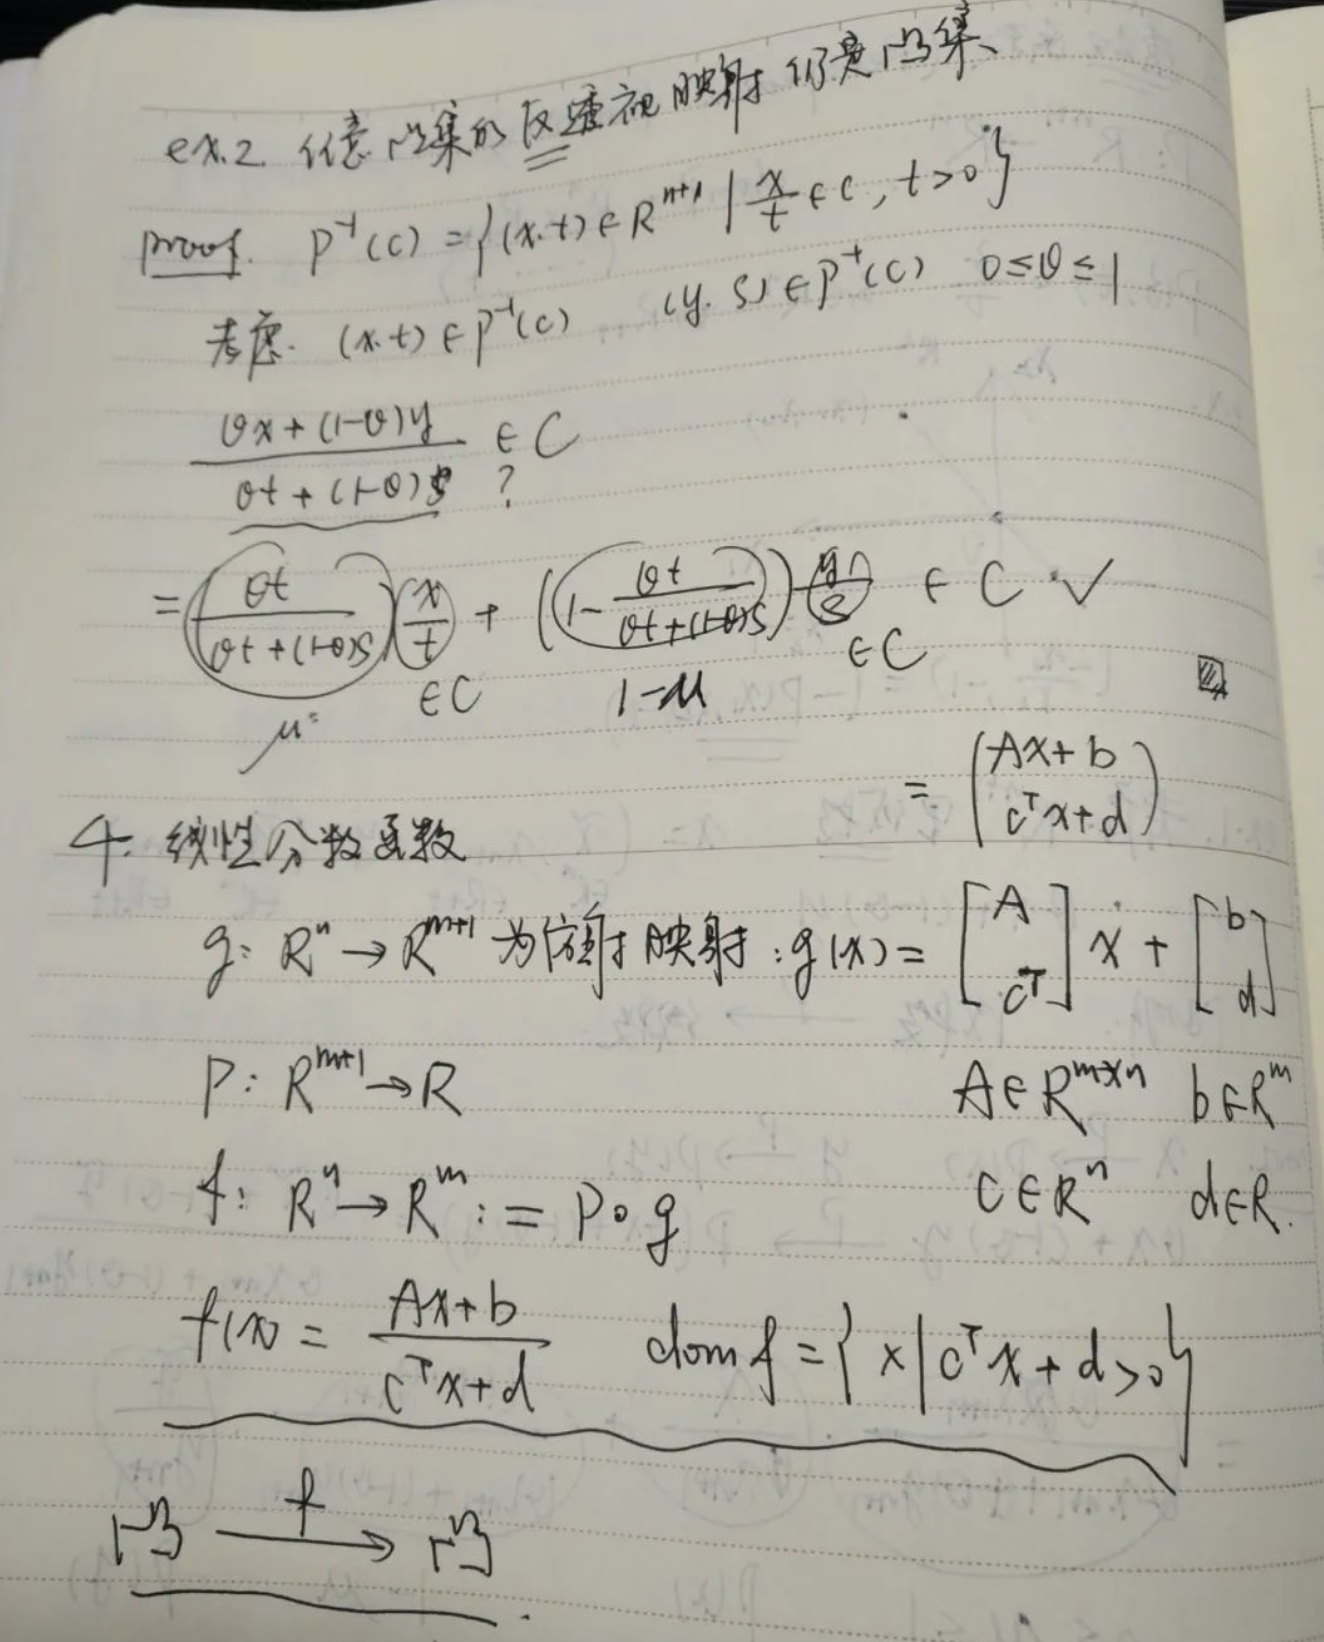 ex.2. 任意凸集的反透视映射仍是凸集、
proof. P⁻¹(C) = {(x.t) ∈ Rⁿ⁺¹ | x/t ∈ C, t>0}
考虑. (x.t) ∈ P⁻¹(C) (y.s) ∈ P⁻¹(C) 0≤θ≤1
(θx+(1-θ)y)/(θt+(1-θ)s) ∈ C ?
= (θt/(θt+(1-θ)s)) (x/t) + (1- θt/(θt+(1-θ)s)) (y/s) ∈ C ✓
μ ∈C 1-μ ∈C
= (Ax+b
cᵀx+d)
4. 线性分数函数
g: Rⁿ → Rᵐ⁺¹ 为仿射映射: g(x) = [A cᵀ] x + [b d]
P: Rᵐ⁺¹ → R A∈Rᵐˣⁿ b∈Rᵐ
f: Rⁿ → Rᵐ := P∘g C∈Rⁿ d∈R.
f(x) = (Ax+b)/(cᵀx+d) dom f = {x | cᵀx+d>0}
凸 f→ 凸.